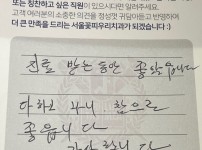 또는 칭찬하고 싶은 직원이 있으시다면 알려주세요.
고객 여러분의 소중한 의견을 정성껏 귀담아듣고 반영하며
더 큰 만족을 드리는 서울꽃피우리치과가 되겠습니다 :)
진료 받는 동안 좋았습니다
다하고 나니 참으로
좋습니다
감사합니다